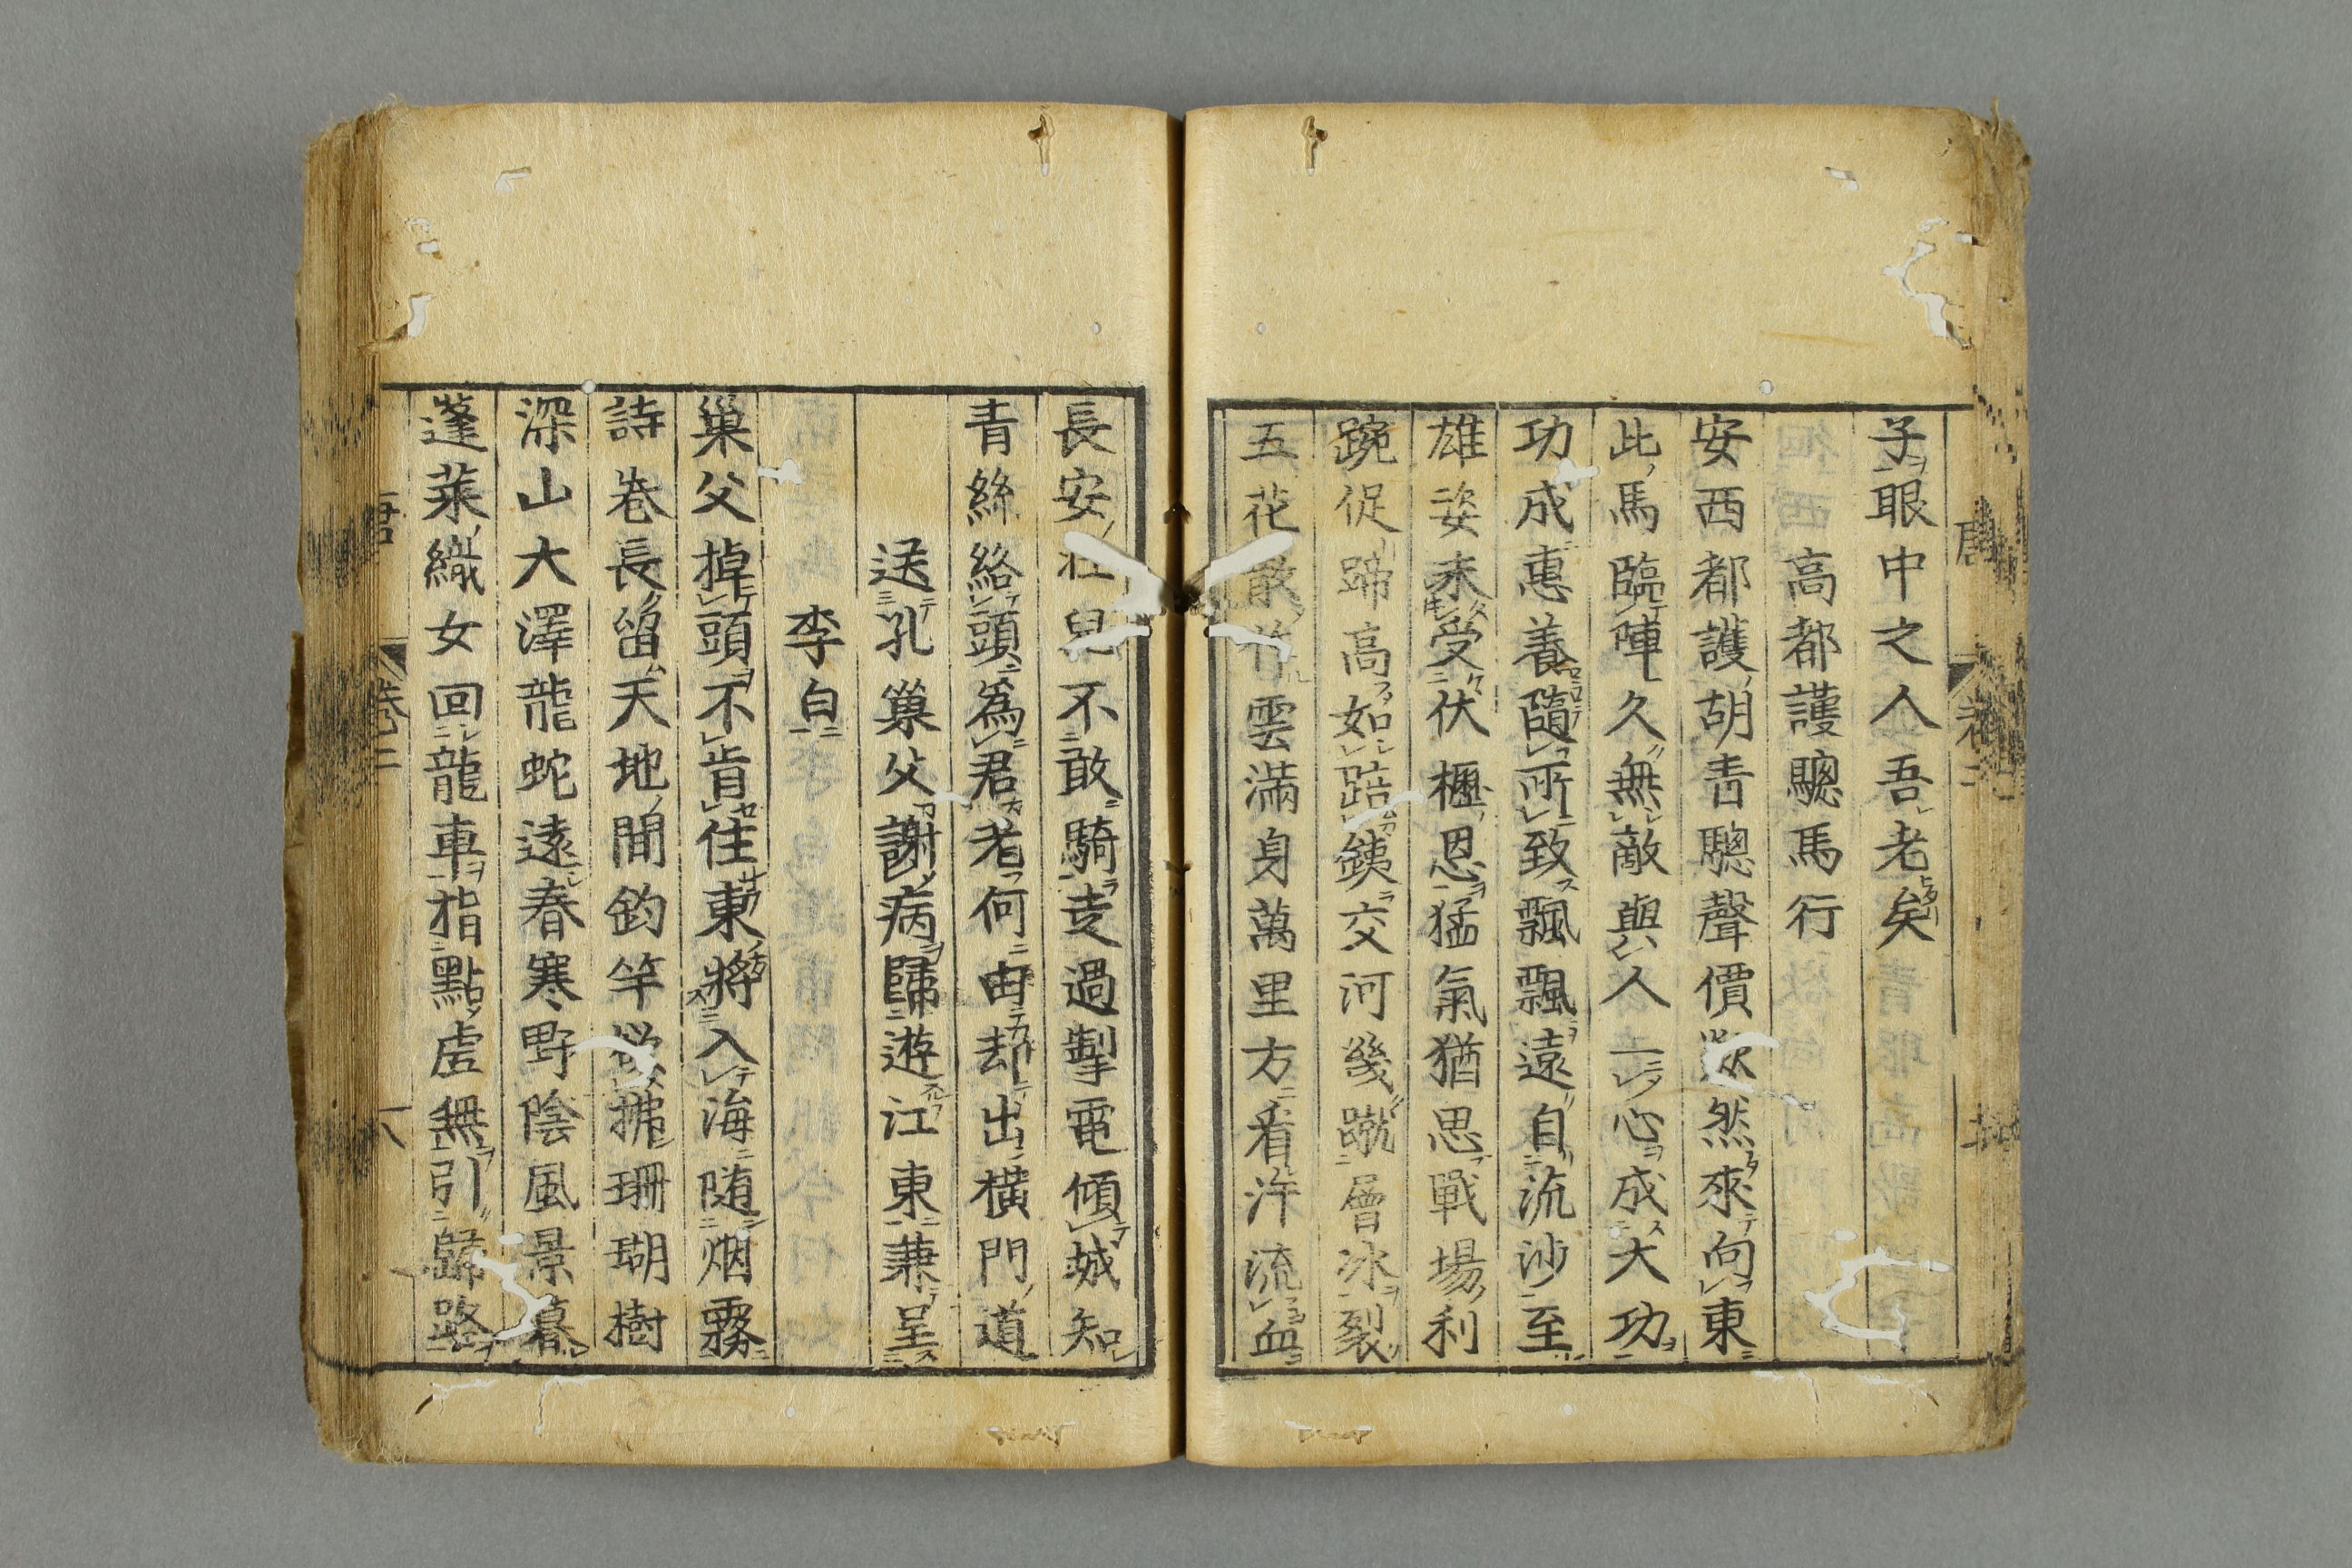 子眼中之人吾老矣
高都護驄馬行
安西都護胡青驄聲價歘然來向東
此馬臨陣久無敵與人一心成大功
功成惠養隨所致飄飄遠自流沙至
雄姿未受伏櫪恩猛氣猶思戰場利
踠促蹄高如踣鐵交河幾蹴層冰裂
五花散作雲滿身萬里方看汗流血
長安壯兒不敢騎走過掣電傾城知
青絲絡頭為君老何由却出橫門道
送孔巢父謝病歸遊江東兼呈
李白
巢父掉頭不肯住東將入海随烟霧
詩卷長留天地間釣竿欲拂珊瑚樹
深山大澤龍蛇遠春寒野陰風景暮
蓬萊織女回龍車指點虛無引歸路
唐 卷二